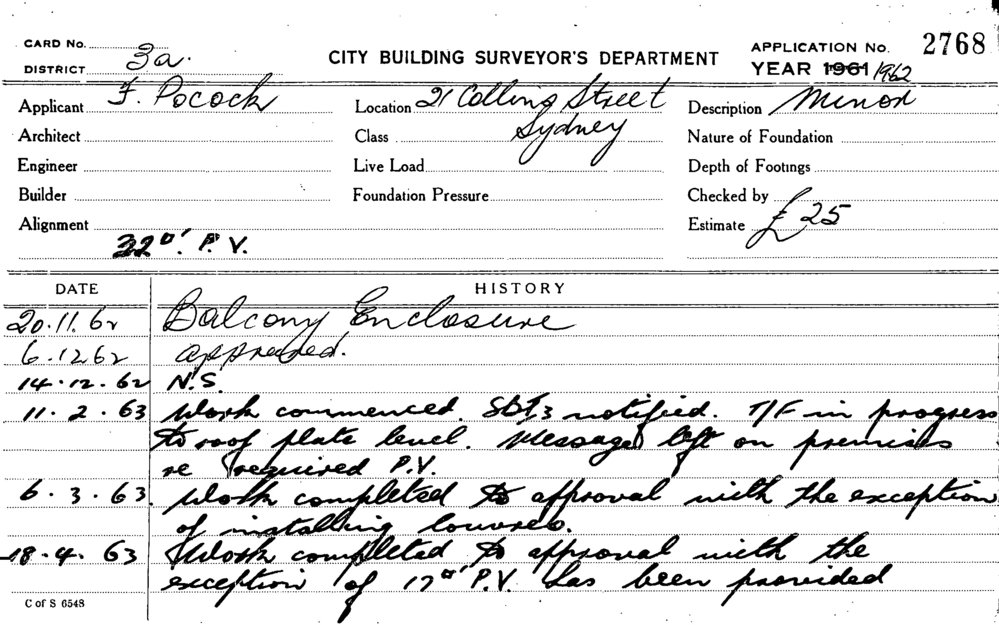 CARD No.
DISTRICT 3a.
CITY BUILDING SURVEYOR'S DEPARTMENT
APPLICATION No. 2768
YEAR 1961 1962
Applicant F. Pocock
Location 21 Collins Street
Sydney
Description Minor
Architect
Class
Nature of Foundation
Engineer
Live Load
Depth of Footings
Builder
Foundation Pressure
Checked by
Alignment
Estimate £25
32□' P.V.
DATE HISTORY
20.11.62 Balcony Enclosure
6.12.62 approved.
14.12.62 N.S.
11.2.63 Work commenced. notified. T/F in progress
to roof plate level. Message left on premises
re required P.V.
6.3.63. Work completed to approval with the exception
of installing louvres.
18.4.63 Work completed to approval with the
exception of 17□' P.V. has been provided
C of S 6548